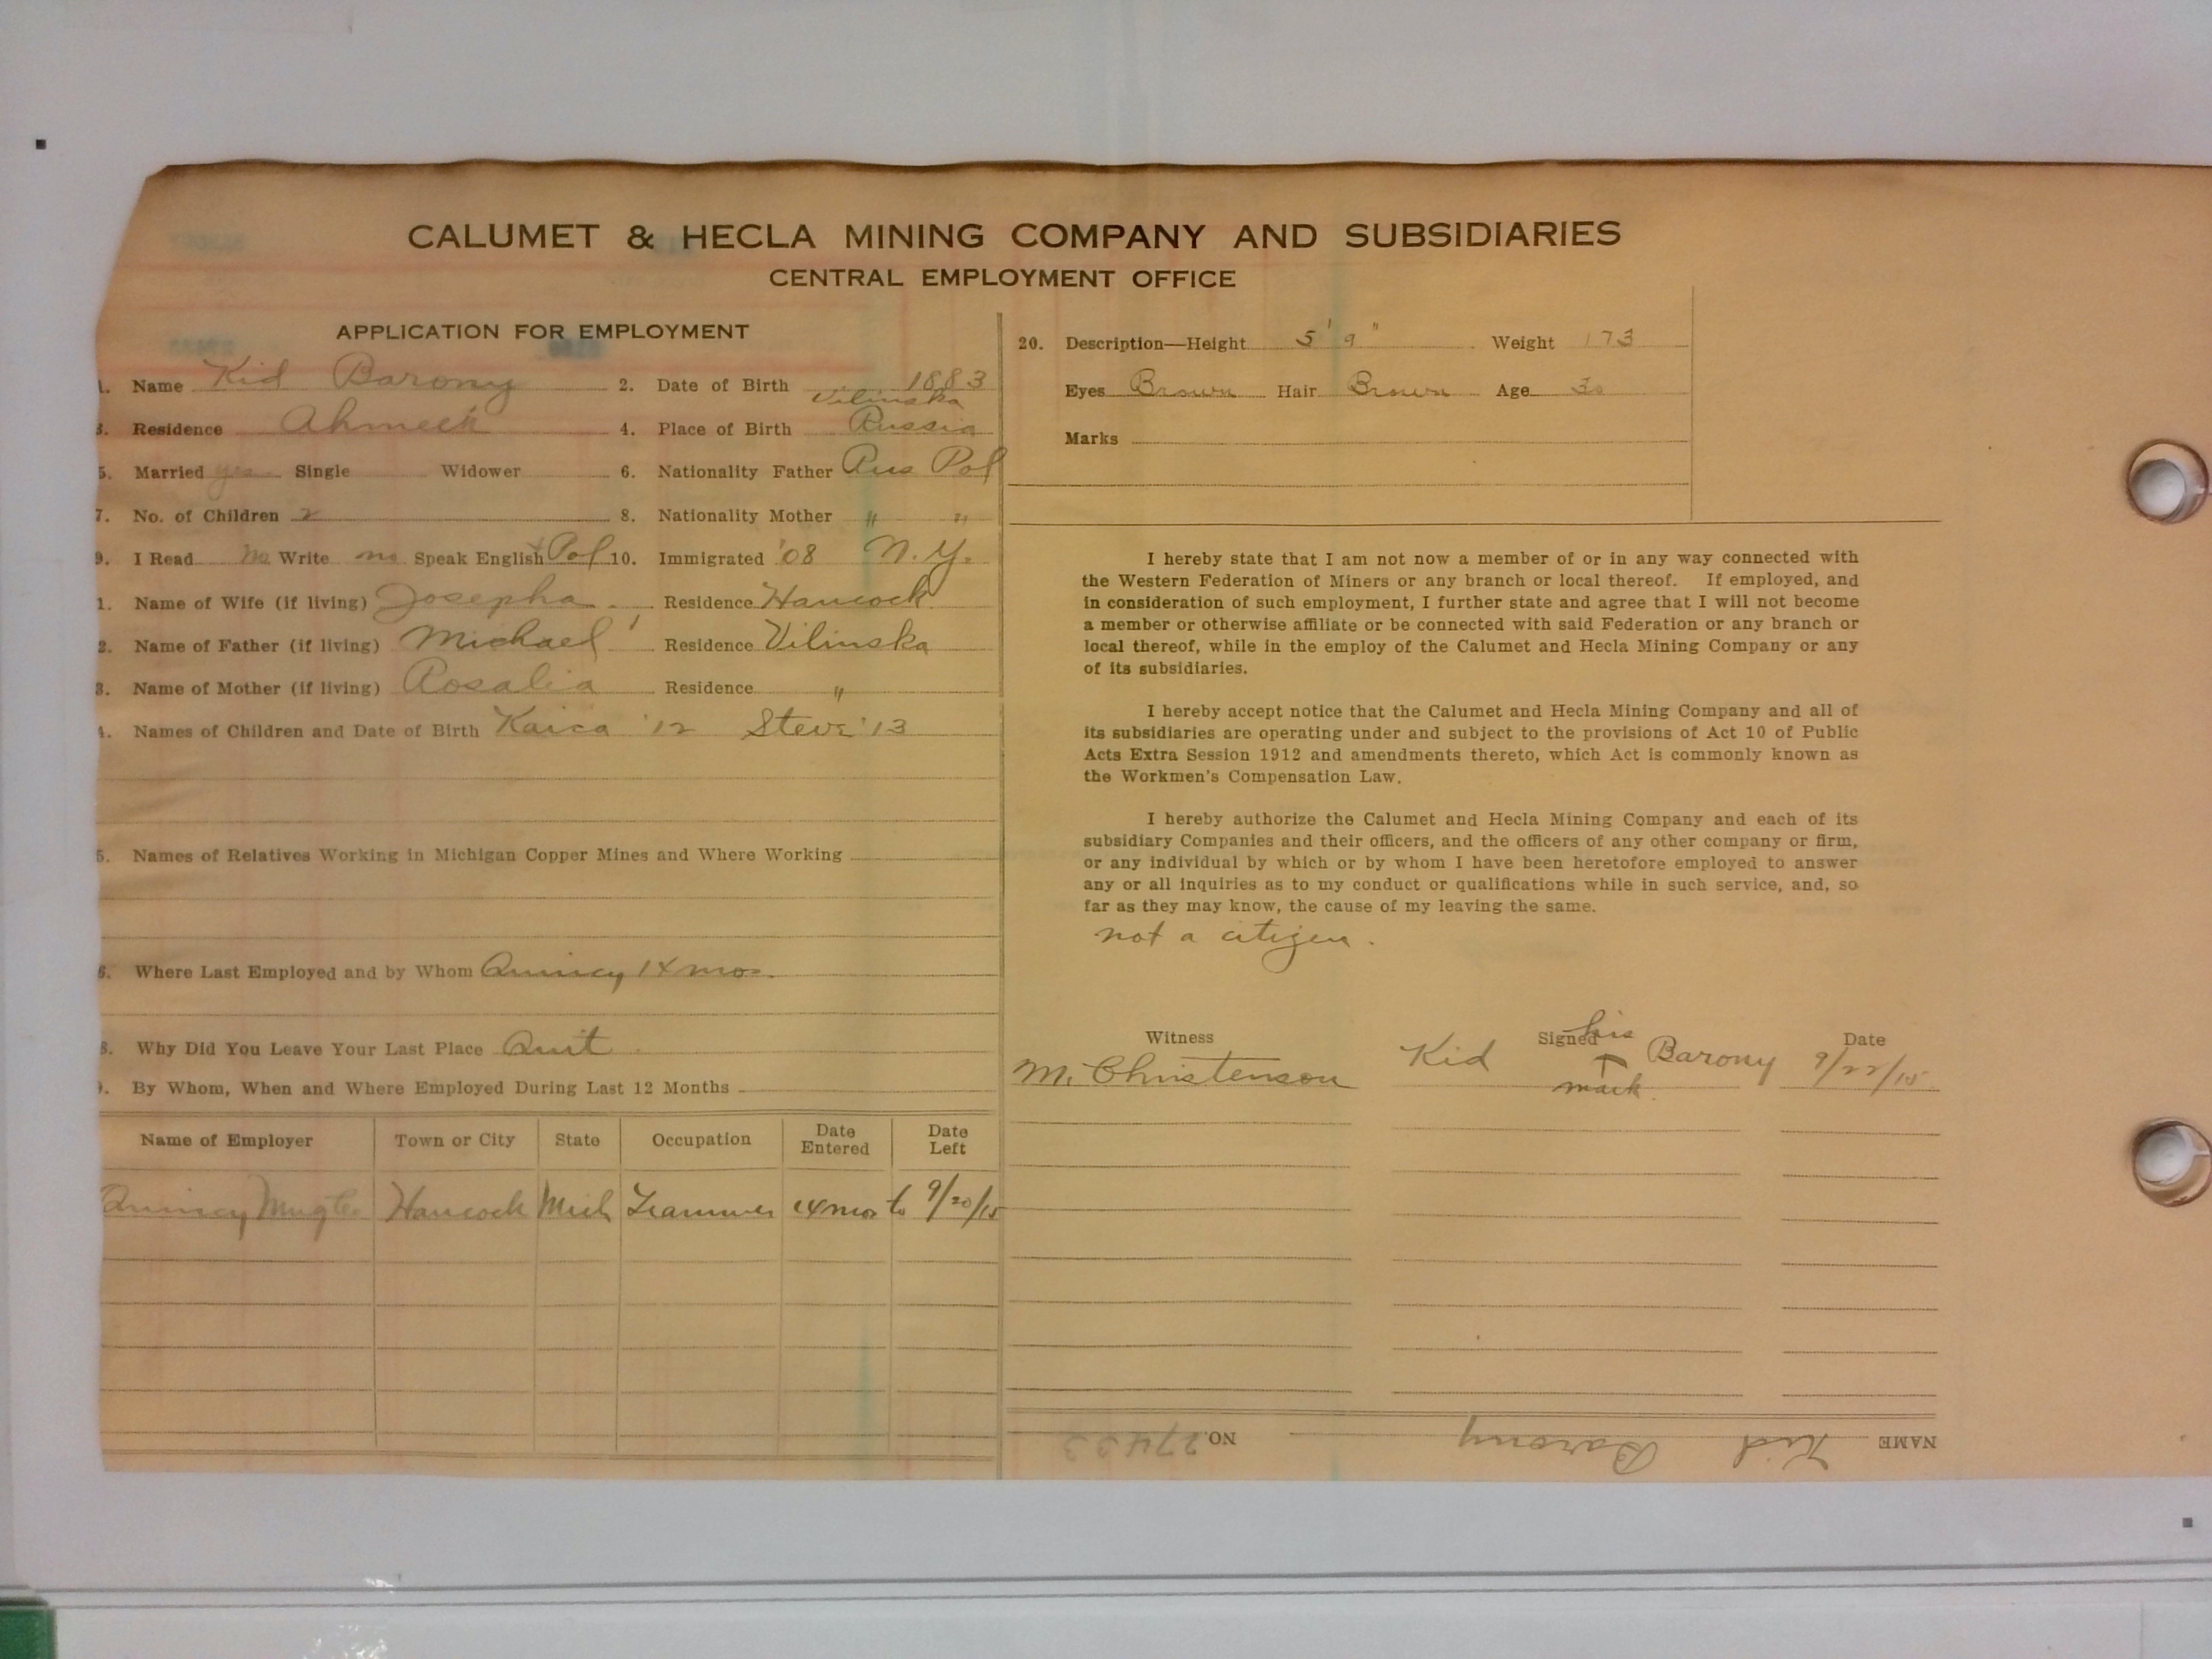 CALUMET & HECLA MINING COMPANY AND SUBSIDIARIES
CENTRAL EMPLOYMENT OFFICE
APPLICATION FOR EMPLOYMENT
1. Name Kid Barony 2. Date of Birth 1883
Vilinska
3. Residence Ahmeek 4. Place of Birth Russia
5. Married yes Single Widower 6. Nationality Father Rus Pol
7. No. of Children 2 8. Nationality Mother " "
9. I Read No Write no Speak English Pol 10. Immigrated '08 N.Y.
1. Name of Wife (if living) Josepha Residence Hancock
2. Name of Father (if living) Michael Residence Vilinska
3. Name of Mother (if living) Rosalia Residence "
4. Names of Children and Date of Birth Kaica '12 Steve '13
5. Names of Relatives Working in Michigan Copper Mines and Where Working
6. Where Last Employed and by Whom Quincy 14 mos.
8. Why Did You Leave Your Last Place Quit
9. By Whom, When and Where Employed During Last 12 Months
Name of Employer Town or City State Occupation Date Entered Date Left
Quincy Mng Co Hancock Mich Trammer 14 mos to 9/20/15
20. Description—Height 5' 9" Weight 173
Eyes Brown Hair Brown Age 30
Marks
I hereby state that I am not now a member of or in any way connected with
the Western Federation of Miners or any branch or local thereof. If employed, and
in consideration of such employment, I further state and agree that I will not become
a member or otherwise affiliate or be connected with said Federation or any branch or
local thereof, while in the employ of the Calumet and Hecla Mining Company or any
of its subsidiaries.
I hereby accept notice that the Calumet and Hecla Mining Company and all of
its subsidiaries are operating under and subject to the provisions of Act 10 of Public
Acts Extra Session 1912 and amendments thereto, which Act is commonly known as
the Workmen's Compensation Law.
I hereby authorize the Calumet and Hecla Mining Company and each of its
subsidiary Companies and their officers, and the officers of any other company or firm,
or any individual by which or by whom I have been heretofore employed to answer
any or all inquiries as to my conduct or qualifications while in such service, and, so
far as they may know, the cause of my leaving the same.
not a citizen.
Witness Signed his Date
M. Christenson Kid Barony 9/22/15
mark
NAME Kid Barony NO. 27433